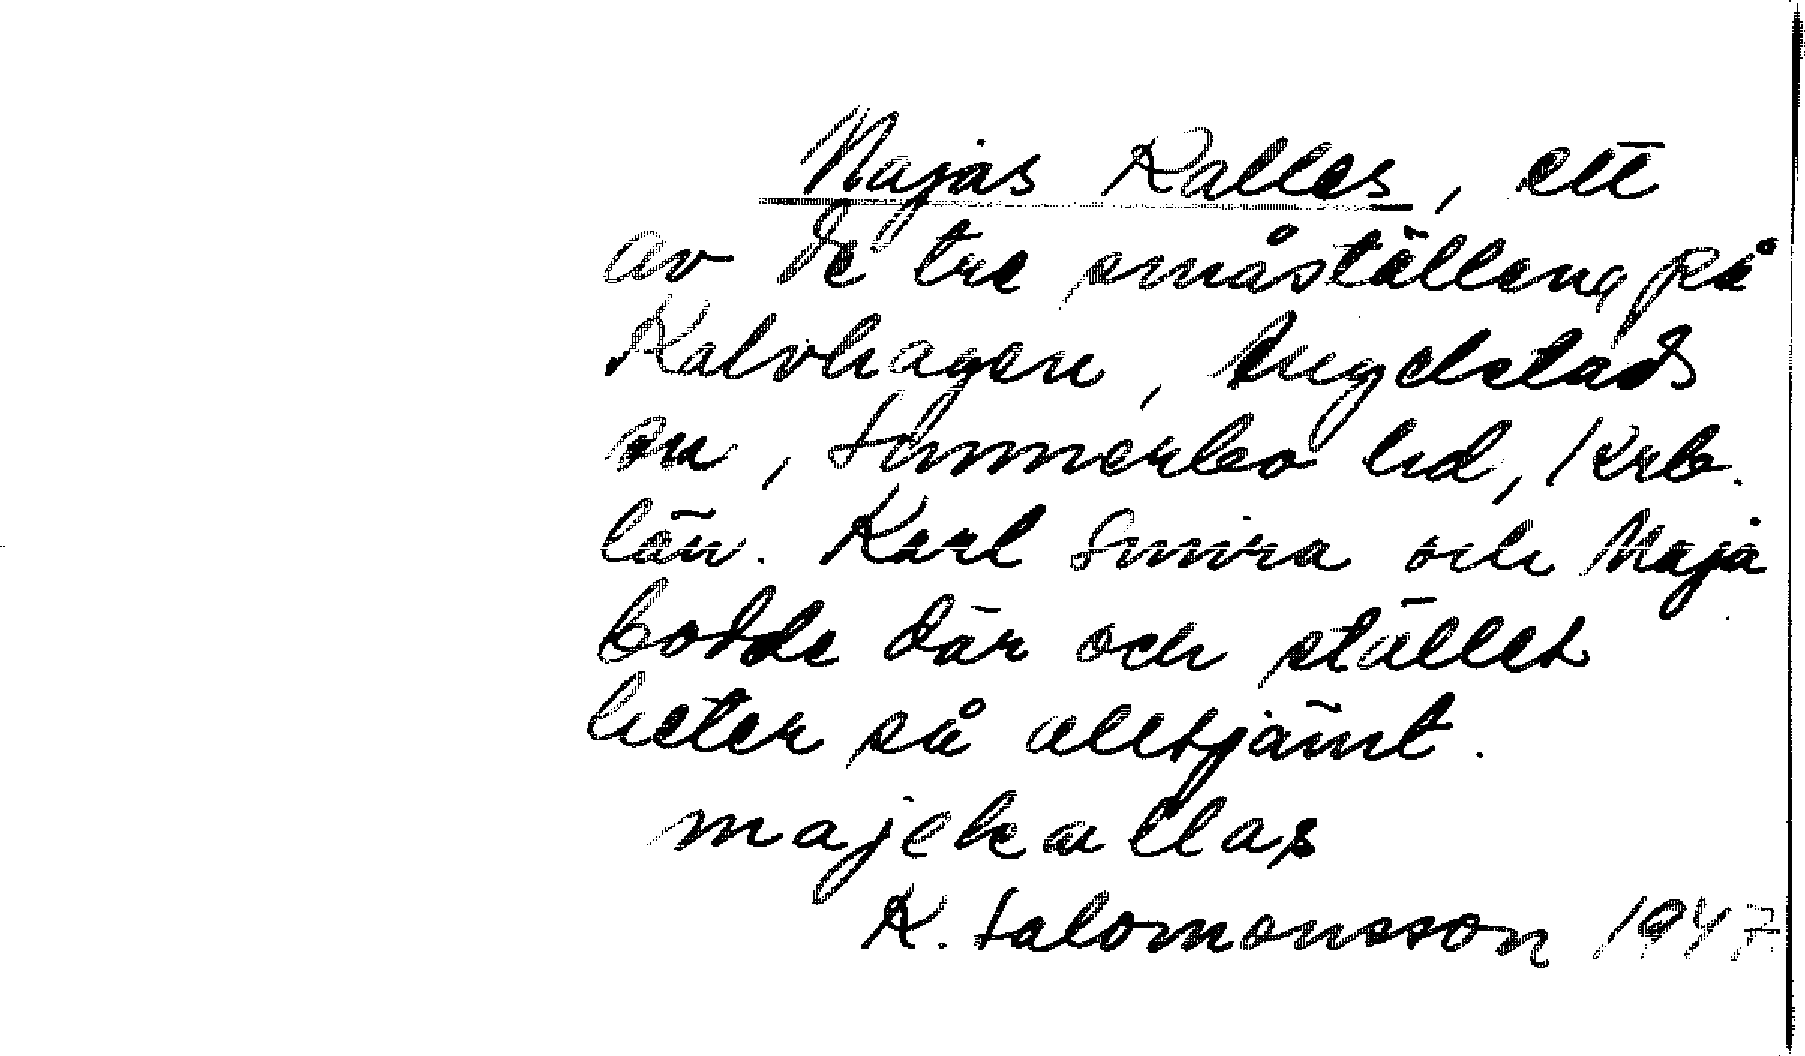 Majas Kalles, ett
av de tre småställena på
Kalvhagen, Angelstads
sn, Sunnerbo hd, Krb.
län. Karl Smira och Maja
bodde där och stället
heter så alltjämt.
majekallas
K. Salomonsson 1947